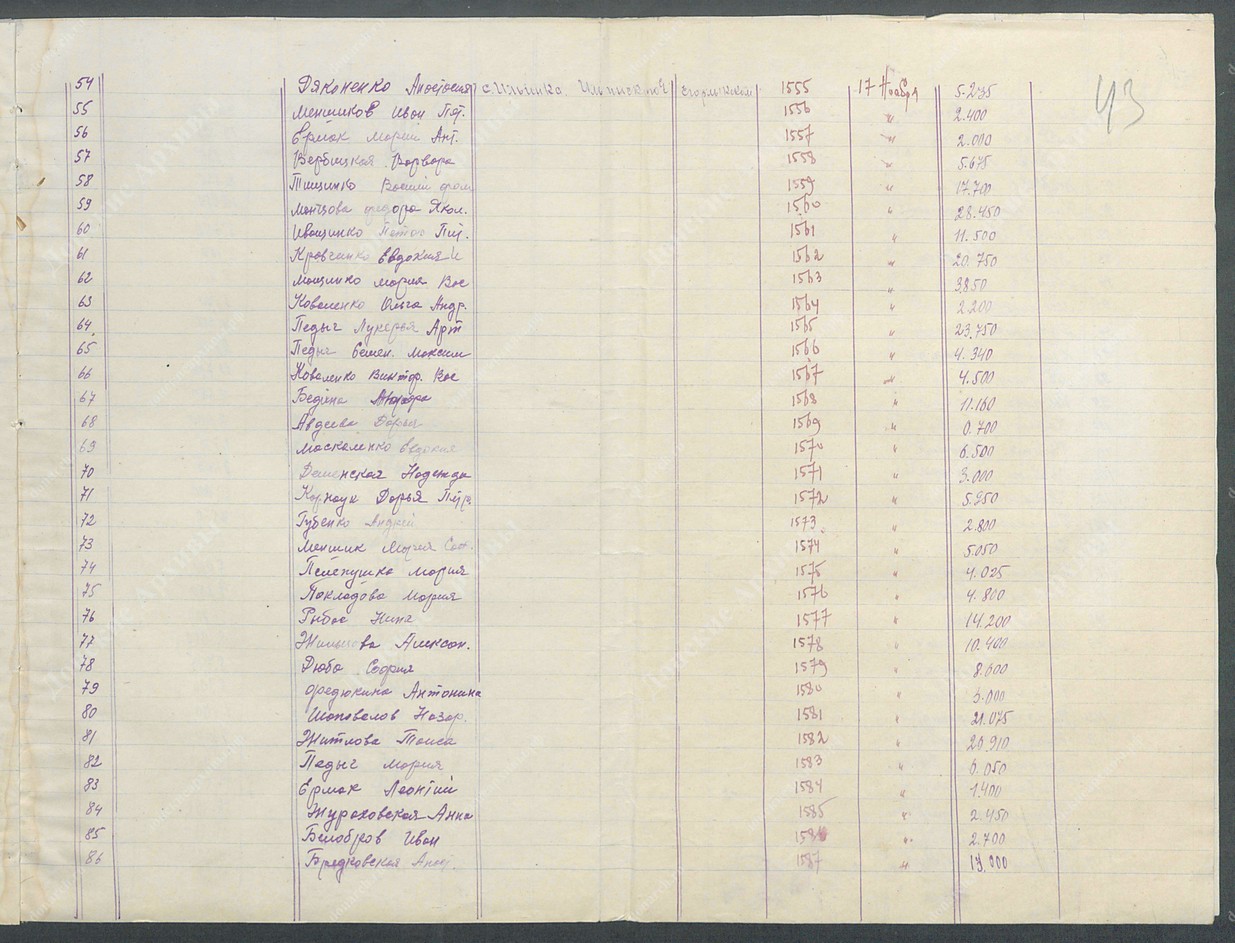 43
54 Дяконенко Анастасия с. Ильинка Ильинской Егорлыкский 1555 17 Ноября 5.235
55 Меншиков Иван Пет. 1556 " 2.400
56 Ермак Марий Ант. 1557 " 2.000
57 Вербицкая Варвара 1558 " 5.675
58 Тищинко Васили 1559 " 17.700
59 Федора Яков. 1560 " 28.450
60 Иващинко Пет. 1561 " 11.500
61 Кравчинко Евдокия И 1562 " 20.750
62 Мащинко Мария Вас 1563 " 3.850
63 Коваленко Ольга Андр. 1564 " 2.200
64. Педыч Лукерья Арт 1565 " 23.750
65 Педыч Семен. Максим 1566 " 4.340
66 Коваленко Виктор. Вас 1567 " 4.500
67 Бедина 1568 " 11.160
68 Авдеева Дарья 1569 " 0.700
69 Москаленко Евдокия 1570 " 6.500
70 Надежда 1571 " 3.000
71 Карнаук Дарья Петр. 1572 " 5.950
72 Губенко Андрей 1573. " 2.800
73 Меншик Мария 1574 " 5.050
74 Пелепушка Мария 1575 " 4.025
75 Покладова Мария 1576 " 4.800
76 Нина 1577 " 14.200
77 Алексан. 1578 " 10.400
78 Дюба София 1579 " 8.600
79 Федюкина Антонина 1580 " 3.000
80 Шаповалов Назар. 1581 " 21.075
81 Житлова Таиса 1582 " 20.910
82 Педыч Мария 1583 " 6.050
83 Ермак Леонтий 1584 " 1.400
84 Жураховская Анна 1585 " 2.450
85 Белобров Иван 1586 " 2.700
86 1587 " 13.000